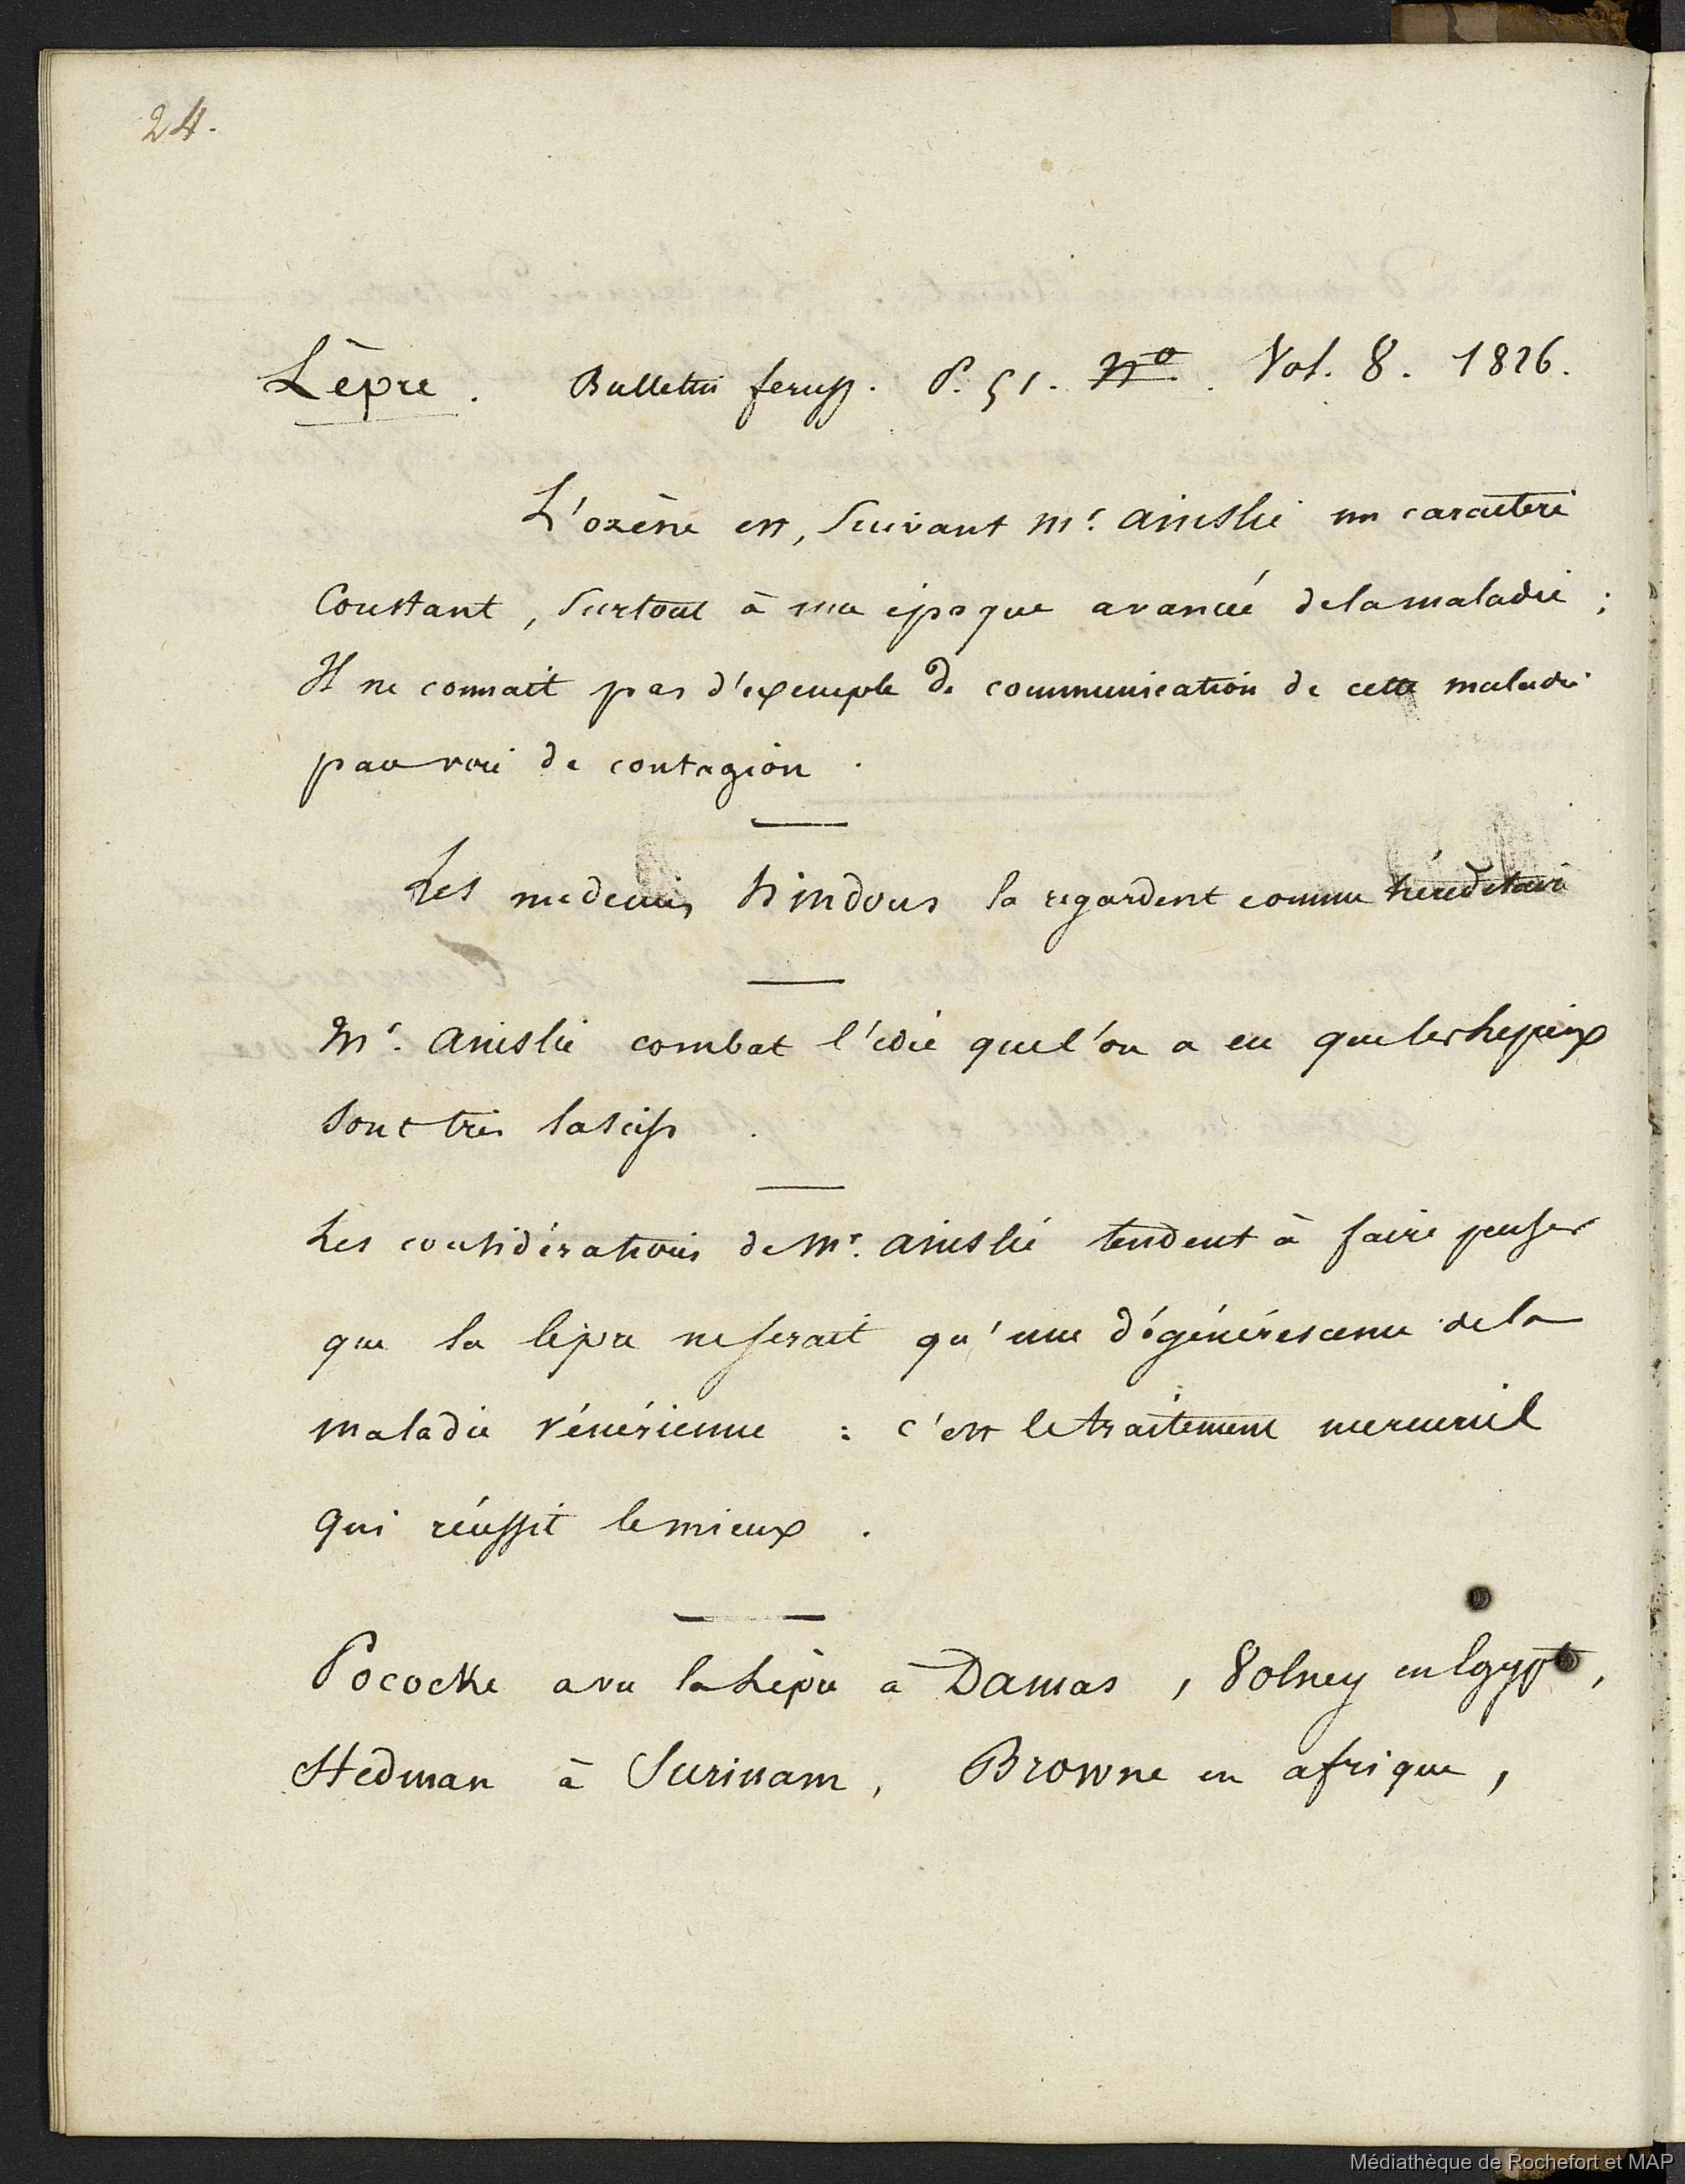 24.
Lèpre. Bulletin feruss. P. 51. N° . Vol. 8. 1826.
L'ozène est, suivant mr. ainslie un caractere
Constant, surtout à une époque avancée de la maladie ;
Il ne connait pas d'exemple de communication de cette maladie
par voie de contagion .
Les medecins hindous la regardent comme héréditaire
Mr. ainslie combat l'idée que l'on a eu que les Lepreux
sont très lascifs .
Les considérations de Mr. ainslie tendent à faire penser
que la lèpre ne serait qu'une dégénérescence de la
maladie vénérienne : c'est le traitement mercuriel
qui réussit le mieux .
Pococke a vu la Lèpre à Damas , Volney en Egypte,
Stedman à Surinam, Browne en afrique ,
Médiathèque de Rochefort et MAP